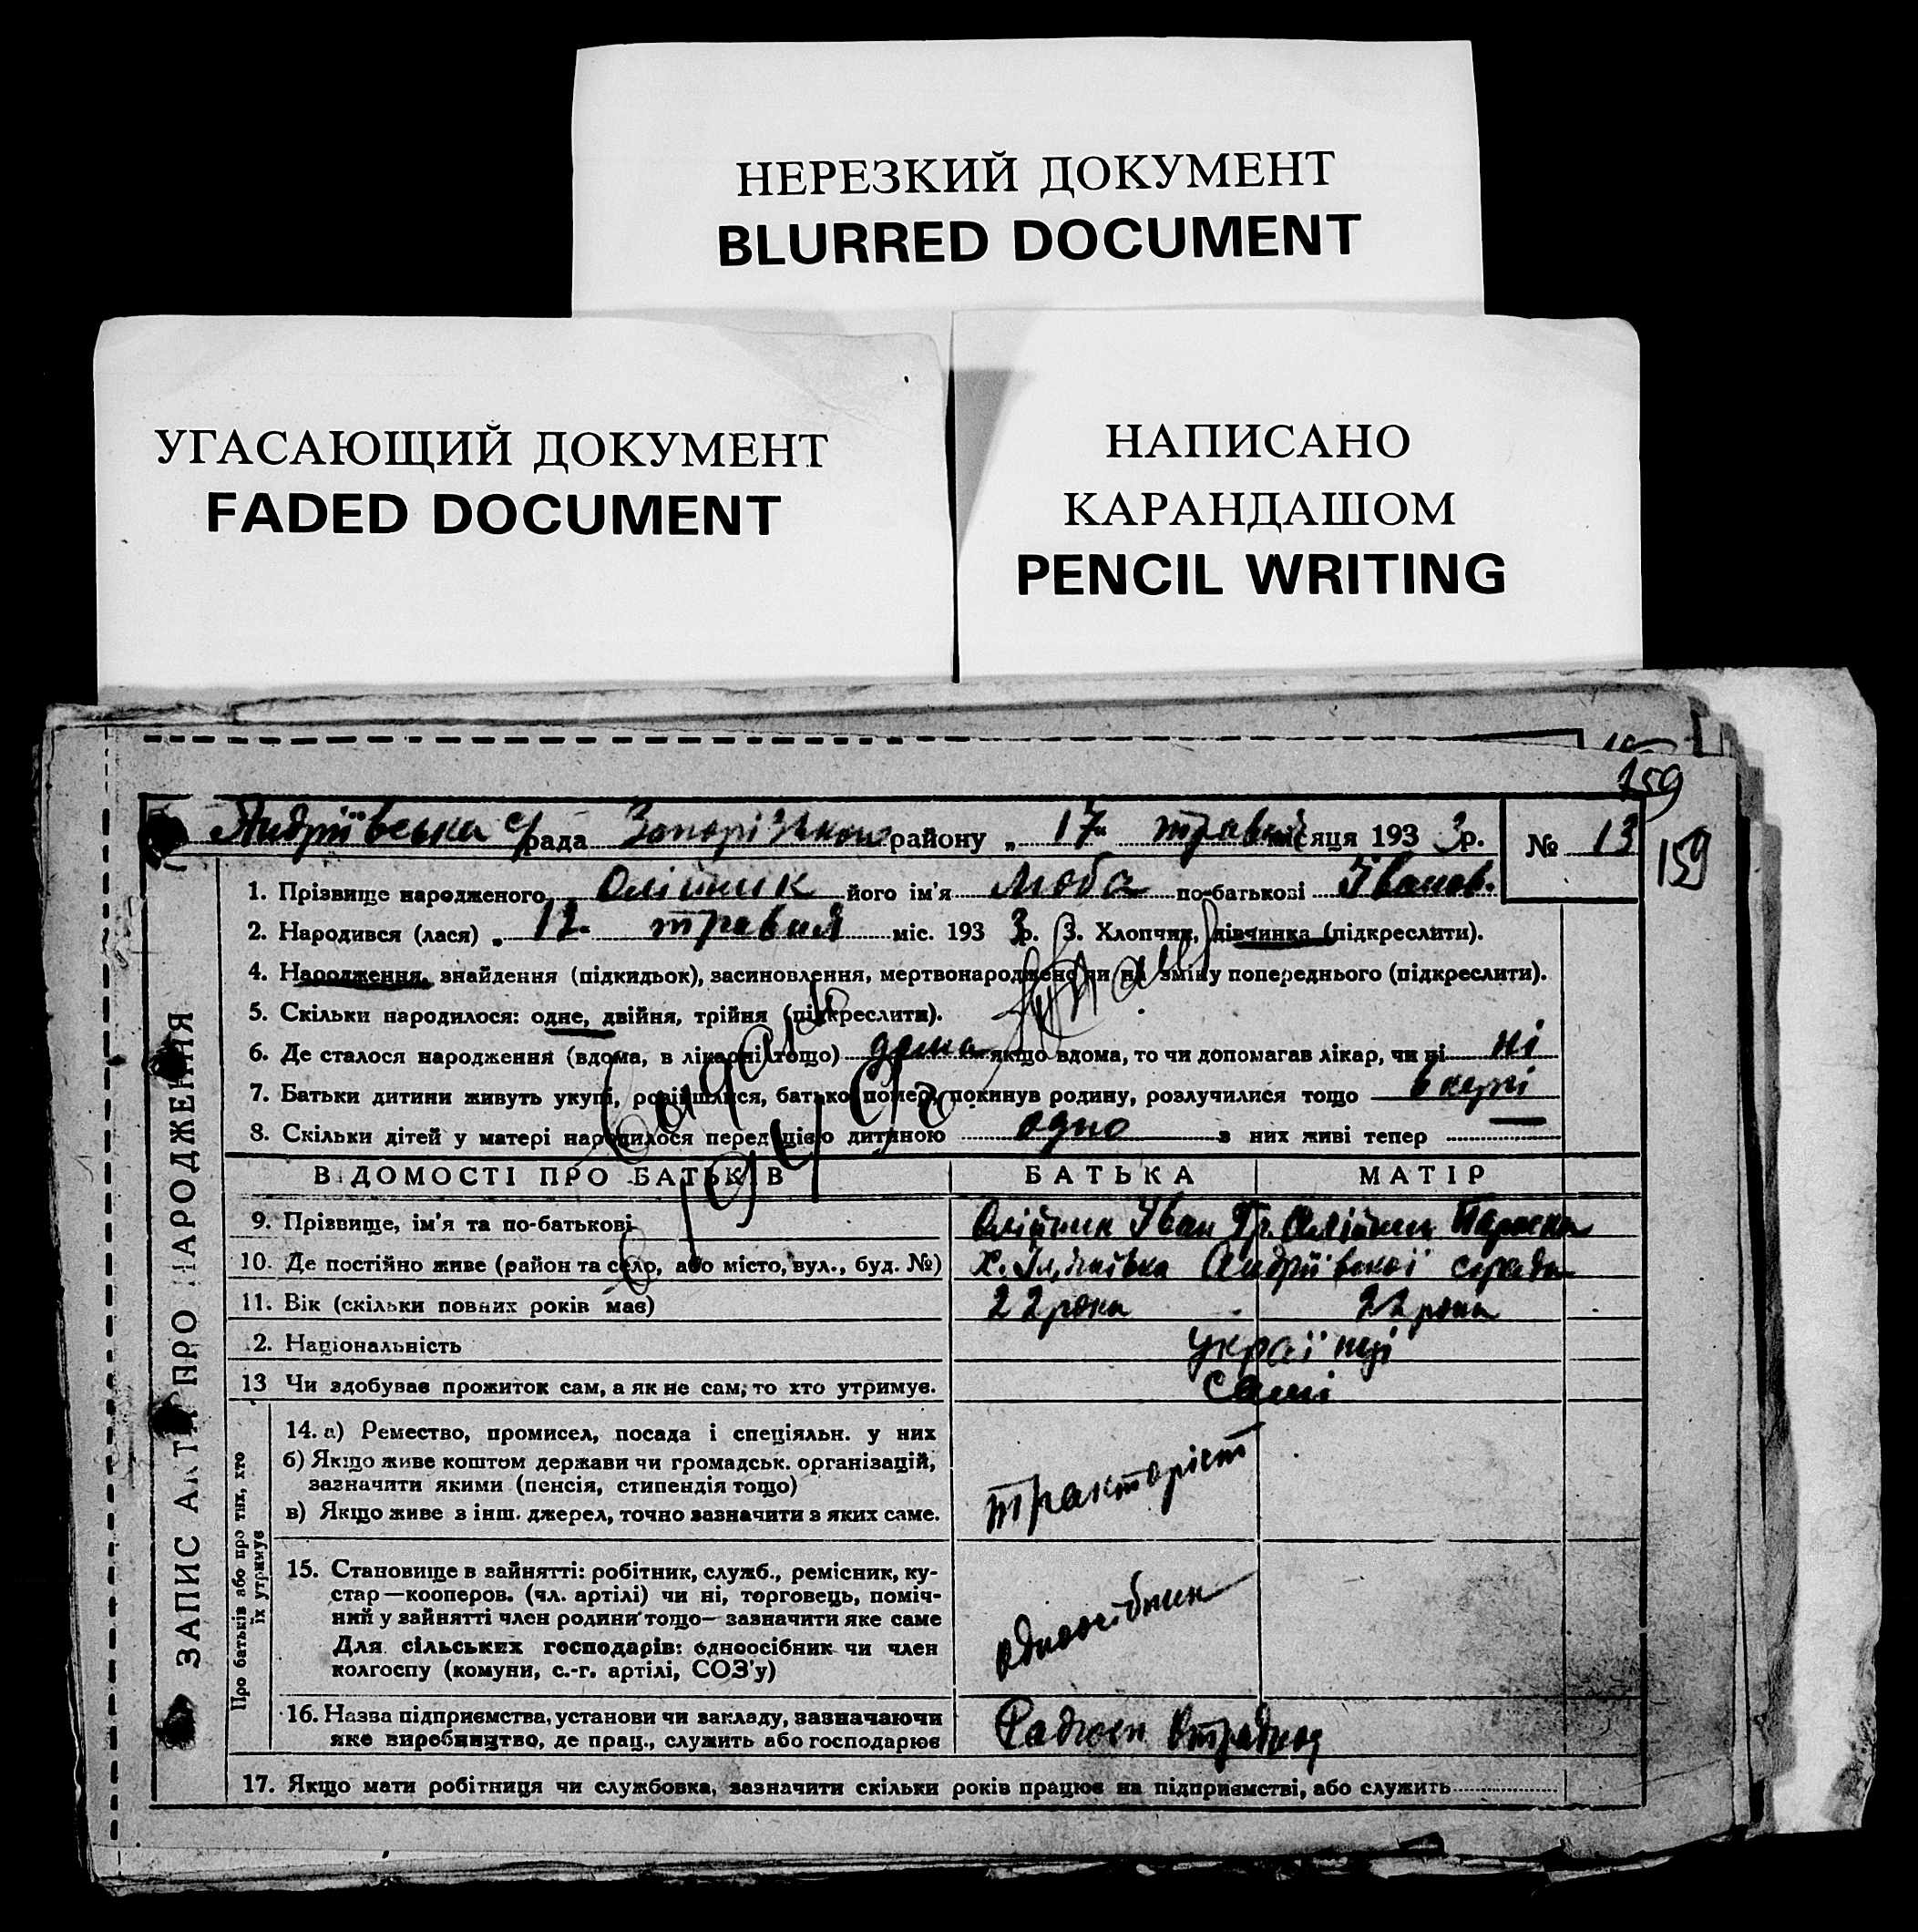 НЕРЕЗКИЙ ДОКУМЕНТ
BLURRED DOCUMENT
УГАСАЮЩИЙ ДОКУМЕНТ
FADED DOCUMENT
НАПИСАНО
КАРАНДАШОМ
PENCIL WRITING
159
Андріївська с/рада Запорізького району „ 17 " травня місяця 193 3 р. № 13
159
1. Прізвище народженого Олійник його ім'я Люба по-батькові Іванов.
2. Народився (лася) „ 12. травня міс. 193 3 р. 3. Хлопчик, дівчинка (підкреслити).
4. Народження, знайдення (підкидьок), засиновлення, мертвонароджено чи на зміну попереднього (підкреслити).
5. Скільки народилося: одне, двійня, трійня (підкреслити).
6. Де сталося народження (вдома, в лікарні тощо) дома якщо вдома, то чи допомагав лікар, чи ні ні
7. Батьки дитини живуть укупі, розійшлися, батько помер, покинув родину, розлучилися тощо вкупі
8. Скільки дітей у матері народилося перед цією дитиною одно з них живі тепер —
ВІДОМОСТІ ПРО БАТЬКІВ БАТЬКА МАТІР
9. Прізвище, ім'я та по-батькові Олійник Іван Гр. Олійник Параска
10. Де постійно живе (район та село, або місто, вул., буд. №) Х. Андріївської с/ради
11. Вік (скільки повних років має) 22 роки 22 роки
12. Національність Українці
13 Чи здобуває прожиток сам, а як не сам, то хто утримує. Самі
14. а) Ремество, промисел, посада і спеціяльн. у них
б) Якщо живе коштом держави чи громадськ. організацій,
зазначити якими (пенсія, стипендія тощо)
в) Якщо живе з інш. джерел, точно зазначити з яких саме.
тракторіст
15. Становище в зайнятті: робітник, служб., ремісник, ку-
стар—кооперов. (чл. артілі) чи ні, торговець, поміч-
ний у зайнятті член родини тощо—зазначити яке саме
Для сільських господарів: одноосібник чи член
колгоспу (комуни, с.-г. артілі, СОЗ'у)
одноосібник
16. Назва підприємства, установи чи закладу, зазначаючи
яке виробництво, де прац., служить або господарює
Радгосп
17. Якщо мати робітниця чи службовка, зазначити скільки років працює на підприємстві, або служить
ЗАПИС АКТУ ПРО НАРОДЖЕННЯ
Про батьків або про тих, хто
їх утримує